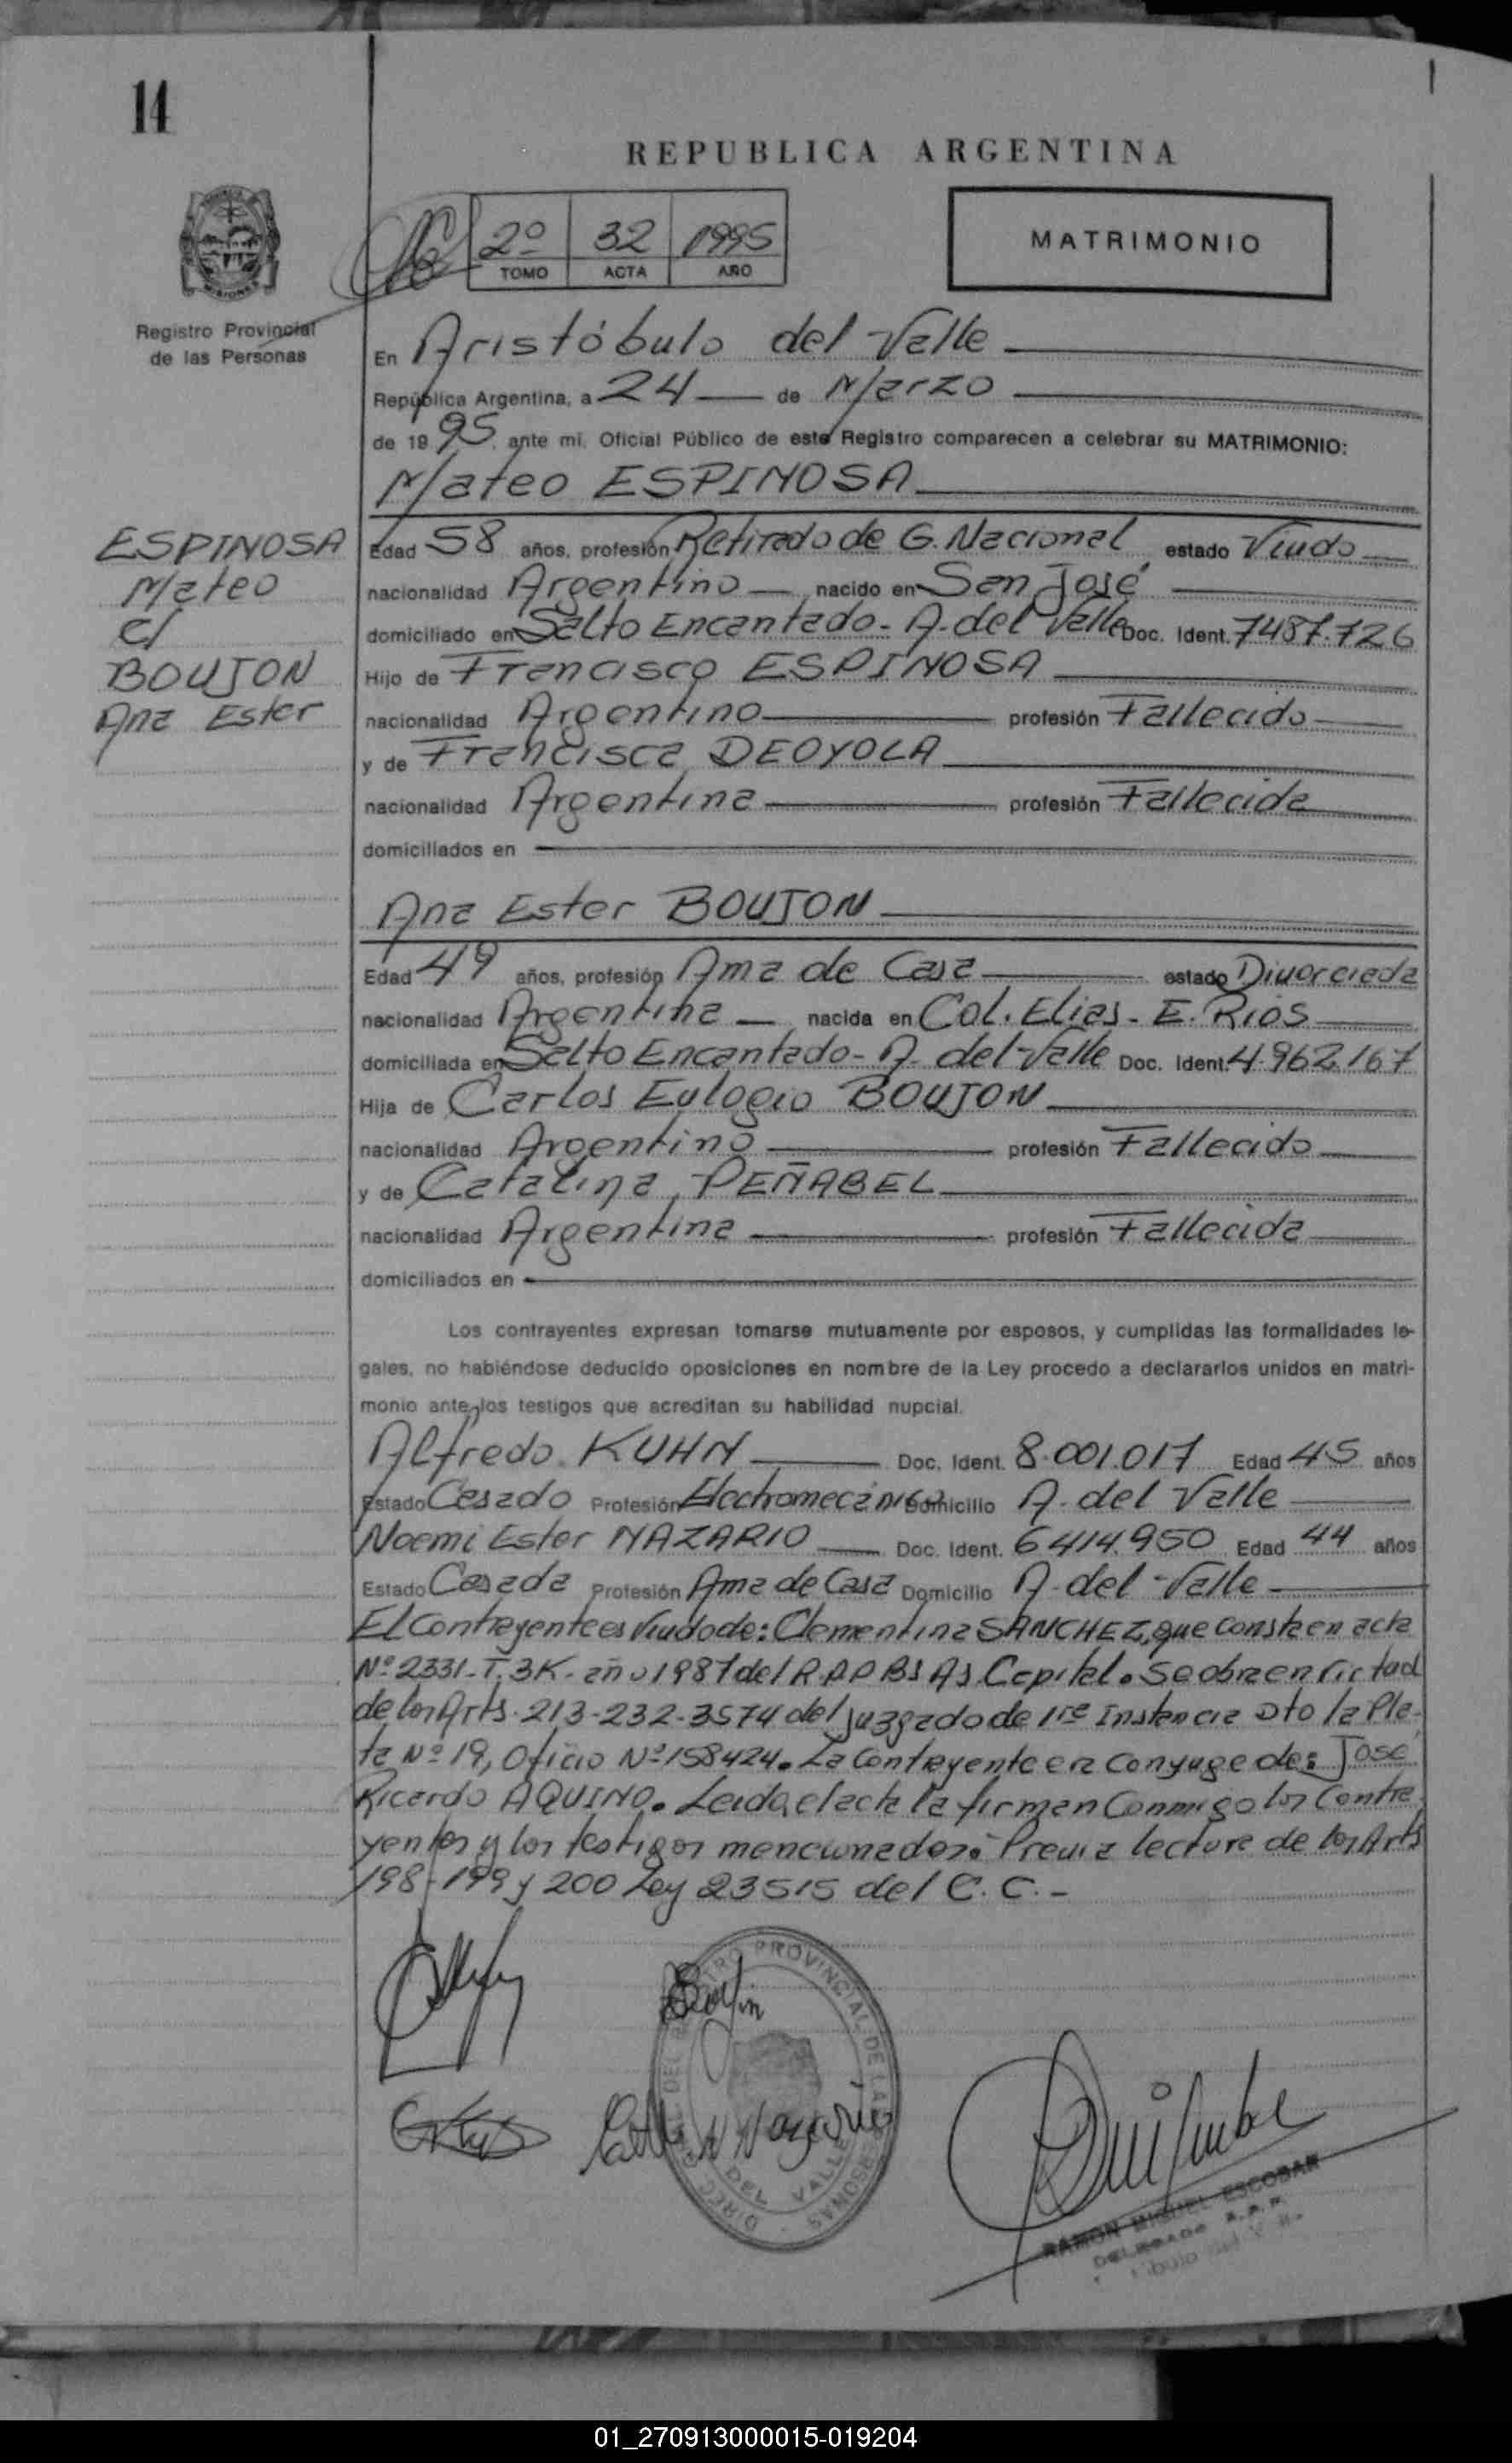 14
REPUBLICA ARGENTINA
2º 32 1995
TOMO ACTA AÑO
MATRIMONIO
Registro Provincial
de las Personas
En Aristóbulo del Valle
República Argentina, a 24 de Marzo
de 1995, ante mí, Oficial Público de este Registro comparecen a celebrar su MATRIMONIO:
Mateo ESPINOSA
ESPINOSA
Mateo
c/
BOUJON
Ana Ester
Edad 58 años, profesión Retirado de G. Nacional estado Viudo
nacionalidad Argentino nacido en San José
domiciliado en Salto Encantado - A. del Valle Doc. Ident. 7487.726
Hijo de Francisco ESPINOSA
nacionalidad Argentino profesión Fallecido
y de Francisca DEOYOLA
nacionalidad Argentina profesión Fallecida
domiciliados en
Ana Ester BOUJON
Edad 49 años, profesión Ama de Casa estado Divorciada
nacionalidad Argentina nacida en Col. Elias - E. Rios
domiciliada en Salto Encantado - A. del Valle Doc. Ident. 4.962.167
Hija de Carlos Eulogio BOUJON
nacionalidad Argentino profesión Fallecido
y de Catalina PEÑABEL
nacionalidad Argentina profesión Fallecida
domiciliados en
Los contrayentes expresan tomarse mutuamente por esposos, y cumplidas las formalidades le-
gales, no habiéndose deducido oposiciones en nombre de la Ley procedo a declararlos unidos en matri-
monio ante los testigos que acreditan su habilidad nupcial.
Alfredo KUHN Doc. Ident. 8.001.017 Edad 45 años
Estado Casado Profesión Electromecánico Domicilio A. del Valle
Noemi Ester NAZARIO Doc. Ident. 6414.950 Edad 44 años
Estado Casada Profesión Ama de Casa Domicilio A. del Valle
El Contrayente es Viudo de: Clementina SANCHEZ, que consta en acta
Nº 2331 - T. 3K - año 1987 del R.A.P Bs As Capital. Se obra en
de los Arts. 213-232-3574 del juzgado de 1ra Instancia Dto la Pla-
ta Nº 19, Oficio Nº 158424. La Contrayente era Conyuge de: José
Ricardo AQUINO. Leida el acta la firman Conmigo los Contra
yentes y los testigos mencionados. Previa lectura de los Arts
198-199 y 200 Ley 23515 del C.C.-
PROVINCIAL DE LAS PERSONAS
DEL VALLE
RAMON MIGUEL ESCOBAR
DELEGADO R.P.P.
01_270913000015-019204